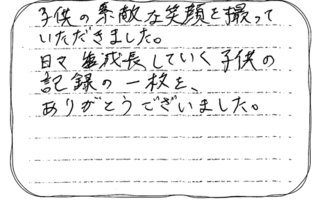 子供の素敵な笑顔を撮って
いただきました。
日々 成長していく子供の
記録の一枚を、
ありがとうございました。